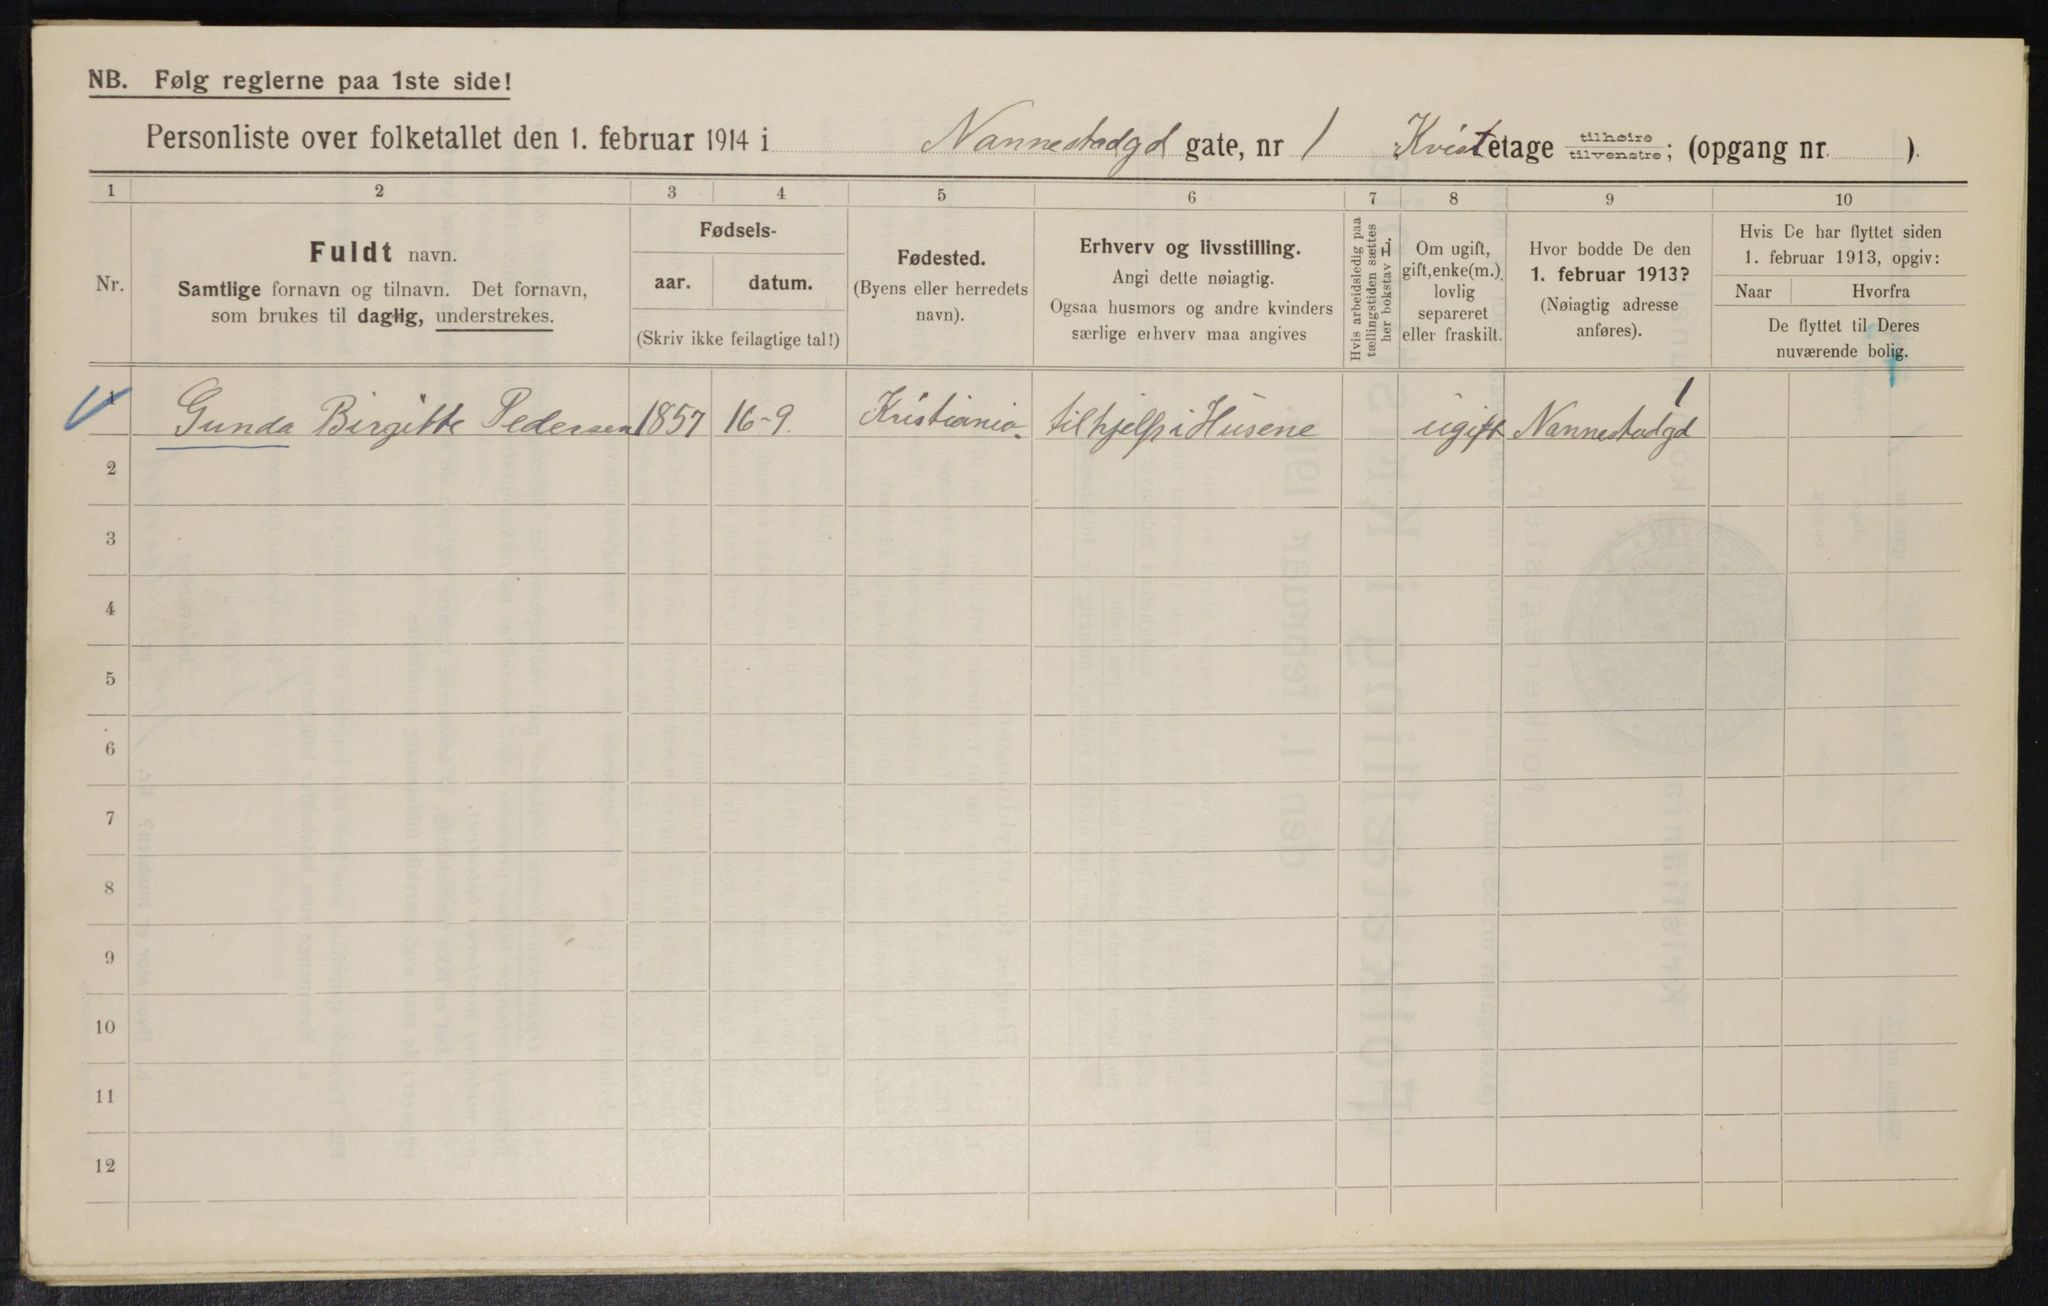 NB. Følg reglerne paa 1ste side!
Personliste over folketallet den 1. februar 1914 i Nannestadgd gate, nr 1 Kvist etage tilhøire tilvenstre; (opgang nr. ).
1 2 3 4 5 6 7 8 9 10
Nr.
Fuldt navn.
Samtlige fornavn og tilnavn. Det fornavn,
som brukes til daglig, understrekes.
Fødsels-
aar. datum.
(Skriv ikke feilagtige tal!)
Fødested.
(Byens eller herredets
navn).
Erhverv og livsstilling.
Angi dette nøiagtig.
Ogsaa husmors og andre kvinders
særlige erhverv maa angives
Hvis arbeidsledig paa
tællingstiden sættes
her bokstav L.
Om ugift,
gift, enke(m.),
lovlig
separeret
eller fraskilt.
Hvor bodde De den
1. februar 1913?
(Nøiagtig adresse
anføres).
Hvis De har flyttet siden
1. februar 1913, opgiv:
Naar Hvorfra
De flyttet til Deres
nuværende bolig.
1 Gunda Birgitte Pedersen 1857 16-9 Kristiania. tilhjelp i Husene ugift Nannestadgd 1
2
3
4
5
6
7
8
9
10
11
12